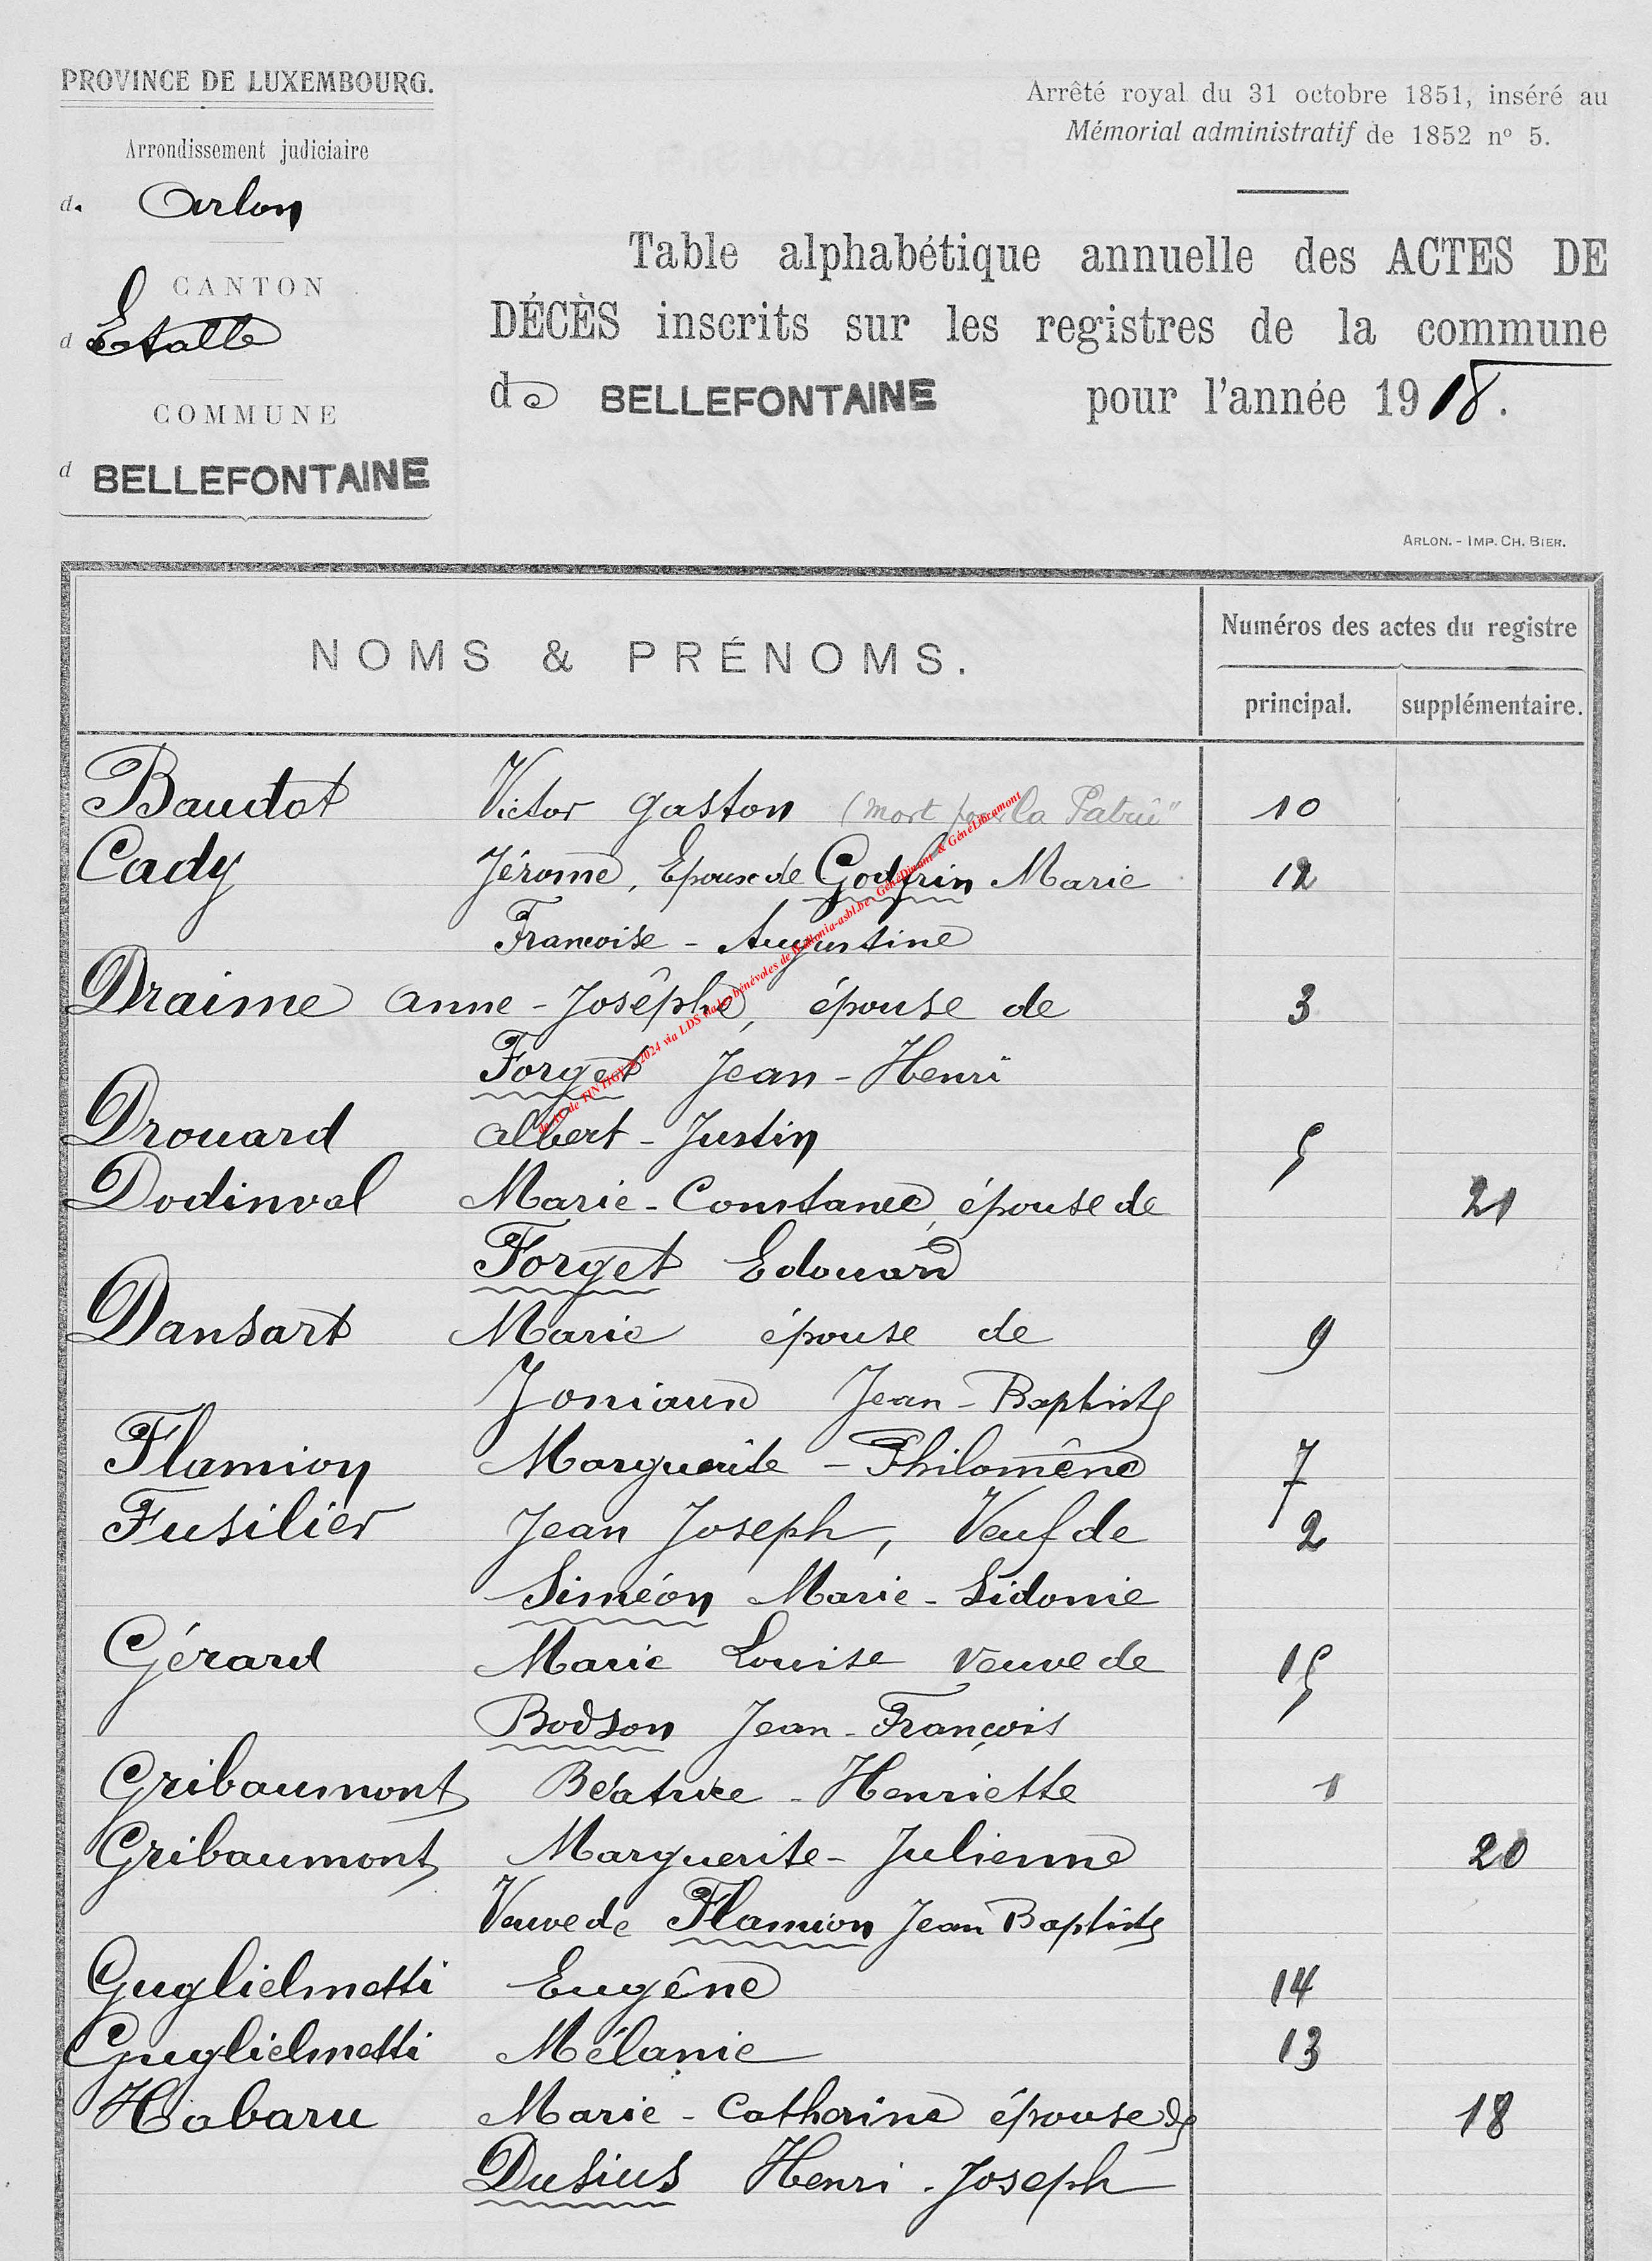 PROVINCE DE LUXEMBOURG.
Arrondissement judiciaire
d. Arlon
CANTON
d Etalle
COMMUNE
d BELLEFONTAINE
Arrêté royal du 31 octobre 1851, inséré au
Mémorial administratif de 1852 nº 5.
Table alphabétique annuelle des ACTES DE
DÉCÈS inscrits sur les registres de la commune
de BELLEFONTAINE pour l'année 1918.
ARLON. - IMP. CH. BIER.
NOMS & PRÉNOMS.
Numéros des actes du registre
principal. supplémentaire.
Baudot Victor Gaston (Mort pour la Patrie" 10
Cady Jérome, Epoux de Godfrin Marie 12
Francoise - Augustine
Draime Anne - Josêphe, épouse de 3
Forget Jean - Henri
Drouard Albert - Justin 5
Dodinval Marie - Constance, épouse de 21
Forget Edouard
Dansart Marie épouse de 9
Joniaux Jean - Baptiste
Flamion Marguerite - Philomêne 7
Fusilier Jean Joseph, Veuf de 2
Siméon Marie - Sidonie
Gérard Marie Louise veuve de 15
Bodson Jean - François
Gribaumont Béatrice - Henriette 1
Gribaumont Marguerite - Julienne 20
Veuve de Flamion Jean Baptiste
Guglielmetti Eugêne 14
Guglielmetti Mélanie 13
Habaru Marie - Catherine épouse de 18
Dusius Henri - Joseph